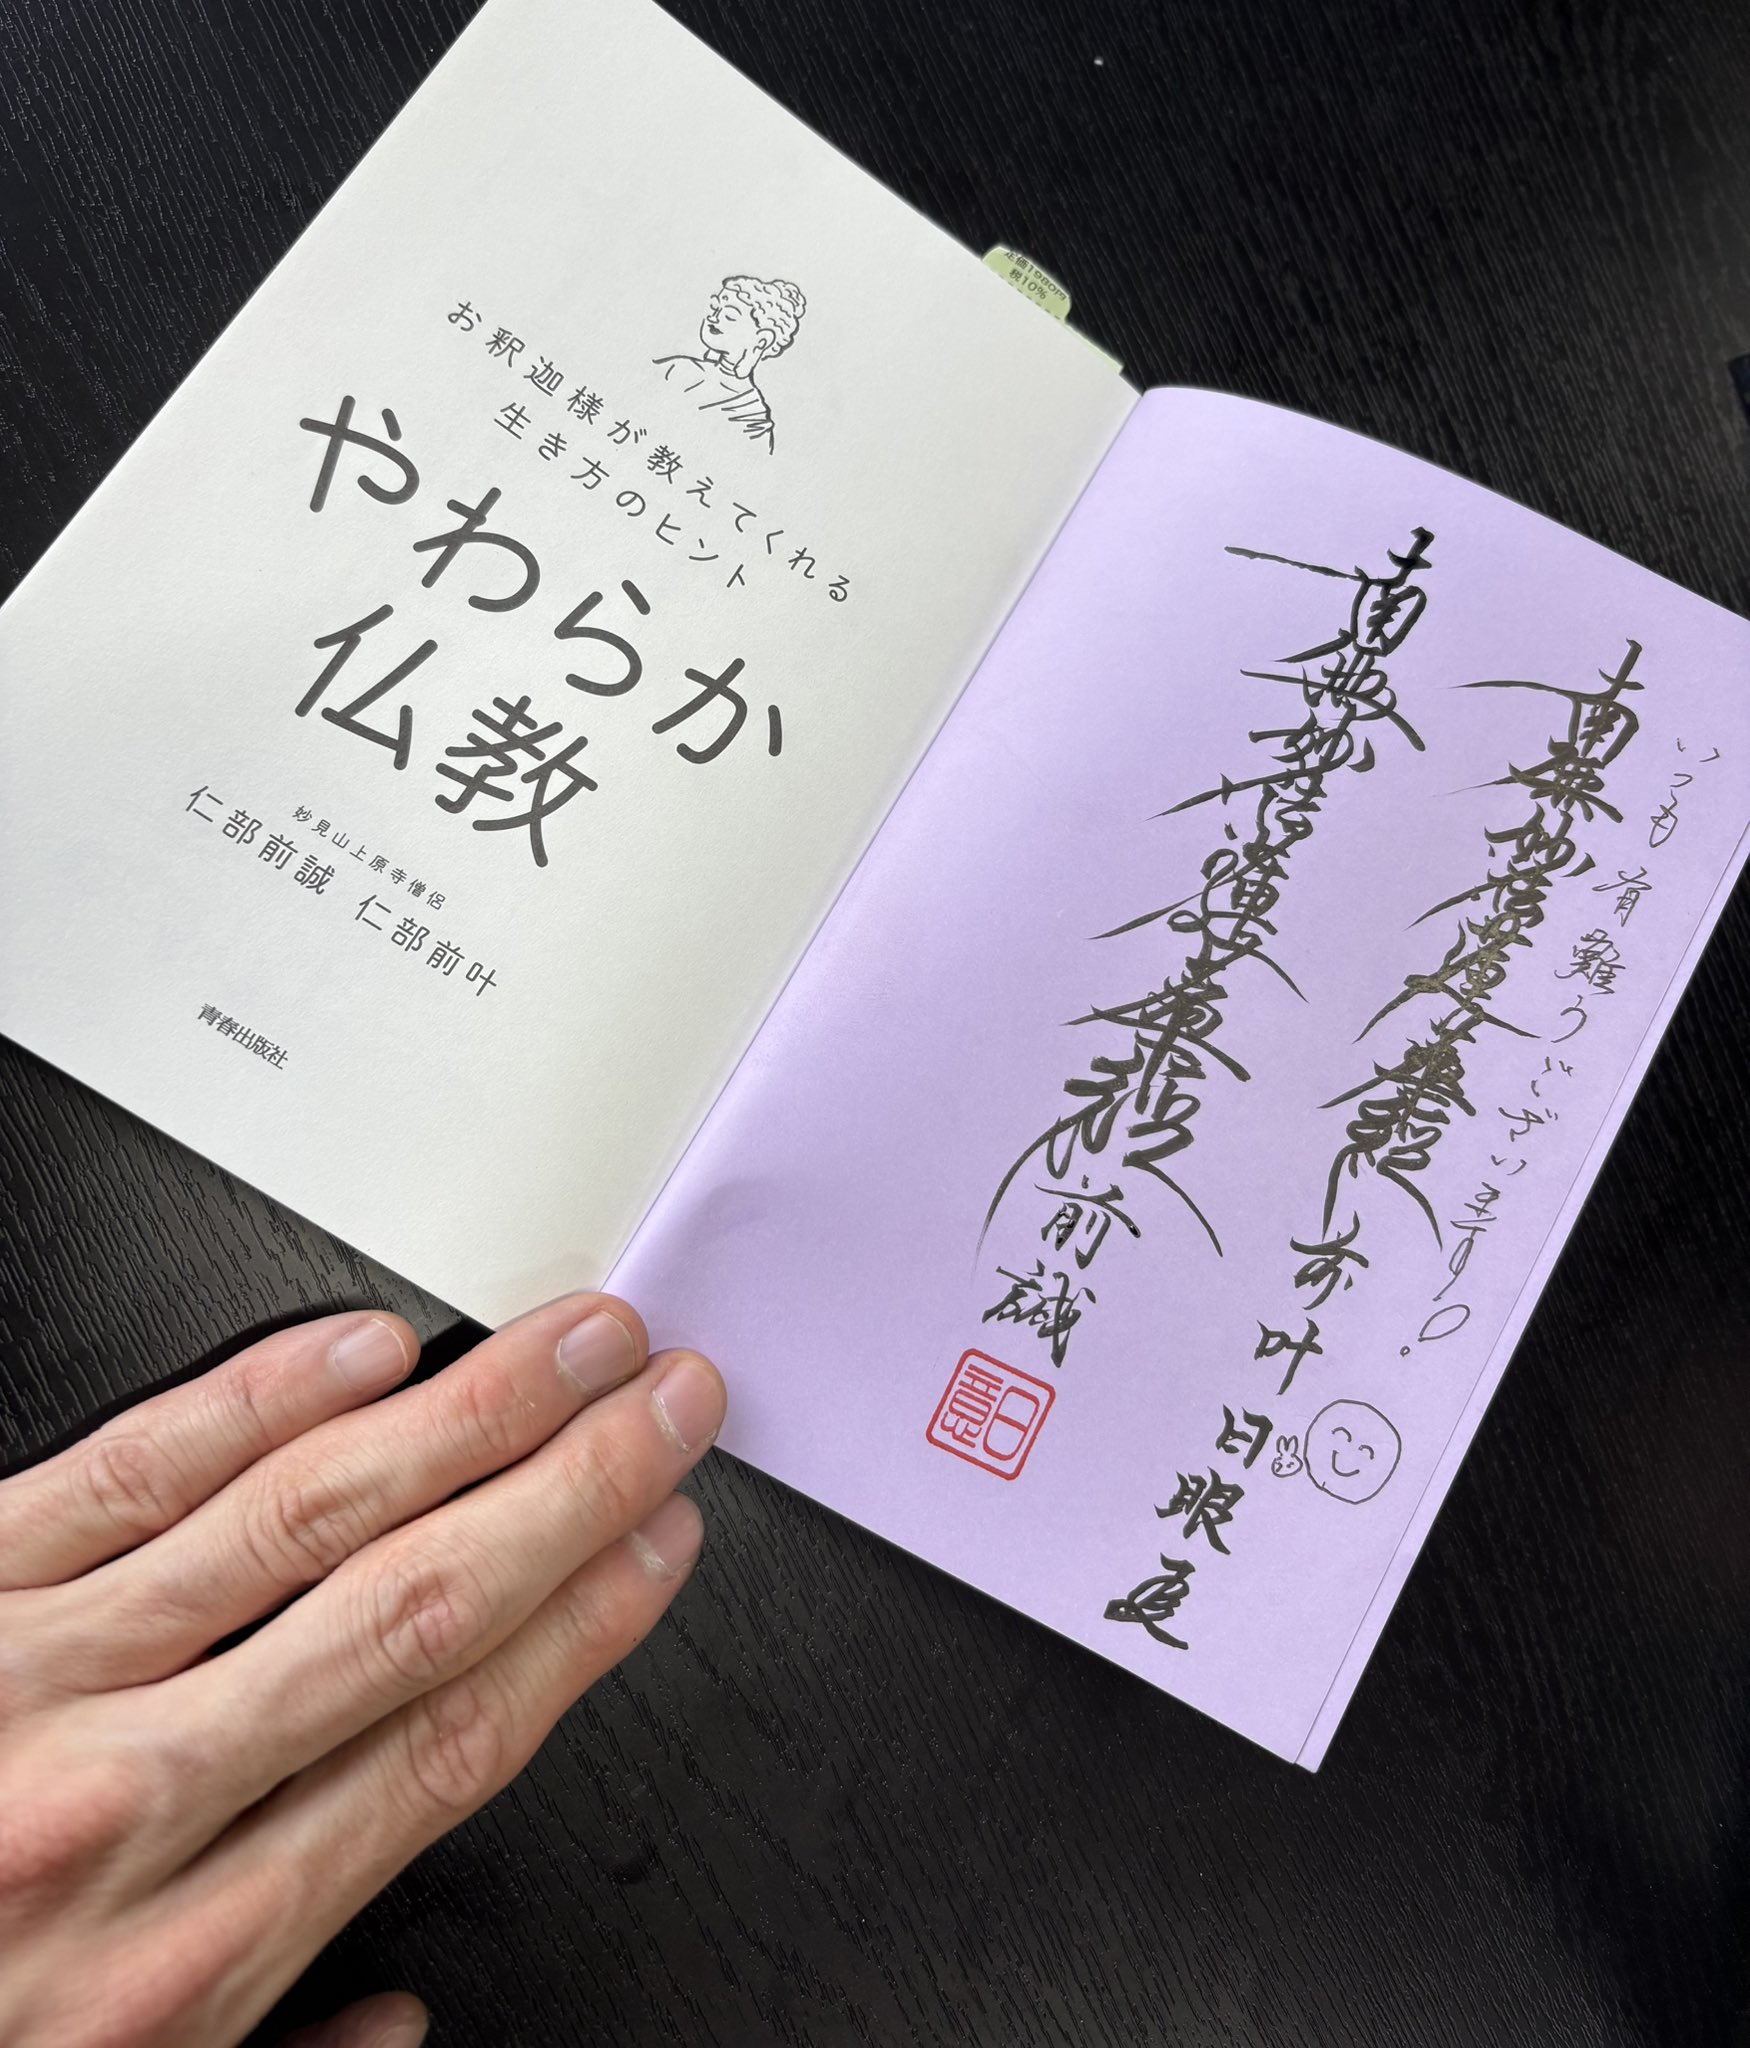 お釈迦様が教えてくれる
生き方のヒント
やわらか
仏教
妙見山上原寺僧侶
仁部前誠 仁部前叶
青春出版社
定価1980円
税10%
いつも有難うございます!
南無妙法蓮華経 前叶
日眼
南無妙法蓮華経 前誠